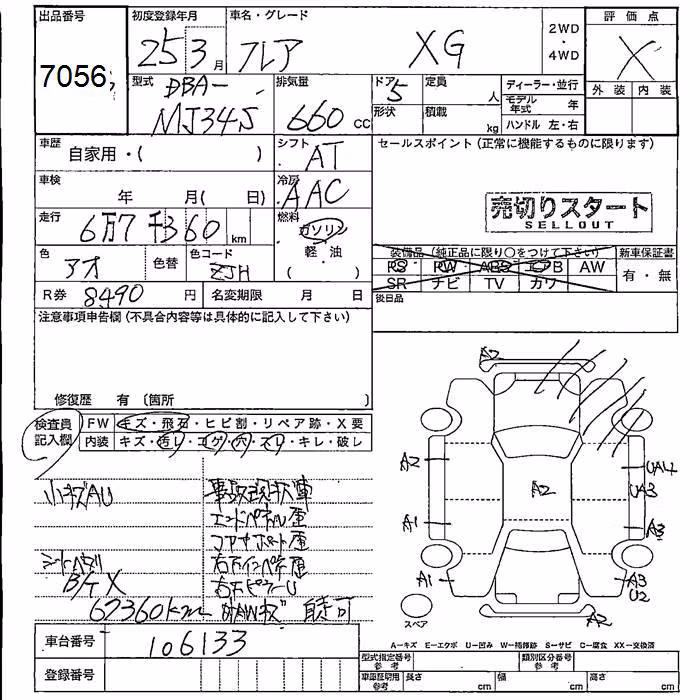 出品番号
7056
初度登録年月
25年3月
車名・グレード
フレア XG
2WD
・
4WD
評価点
X
外装 内装
型式
DBA-
MJ34S
排気量
660 cc
ドア
5
形状
定員
人
積載
kg
ディーラー・並行
モデル年式 年
ハンドル 左・右
車歴
自家用・( )
シフト
AT
セールスポイント (正常に機能するものに限ります)
売切りスタート
SELLOUT
車検
年 月( 日)
冷房
AAC
走行
6万7千360 km
燃料
ガソリン
軽・油
( )
色
アオ
色替
色コード
ZJH
装備品 (純正品に限り○をつけて下さい)
PS PW ABS エアB AW
SR ナビ TV カワ
新車保証書
有・無
R券 8490 円
名変期限 月 日
後日品
注意事項申告欄 (不具合内容等は具体的に記入して下さい)
修復歴 有 (箇所 )
検査員
記入欄
FW キズ・飛石・ヒビ割・リペア跡・X要
内装 キズ・汚レ・コゲ・穴・スレ・キレ・破レ
小キズAU
事故現状車
エンドパネル歪
コアサポート歪
右インパネ歪
右ピラーU
B/T X
67360km
外AWキズ
自走可
A2
A2
UA4
UA3
A2
A1
A3
A1
A3
U2
A2
スペア
A―キズ E―エクボ U―凹み W―補修跡 S―サビ C―腐食 XX―交換済
車台番号 106133
登録番号
型式指定番号
参考
類別区分番号
参考
車庫証明用
参考
長さ cm
幅 cm
高さ cm